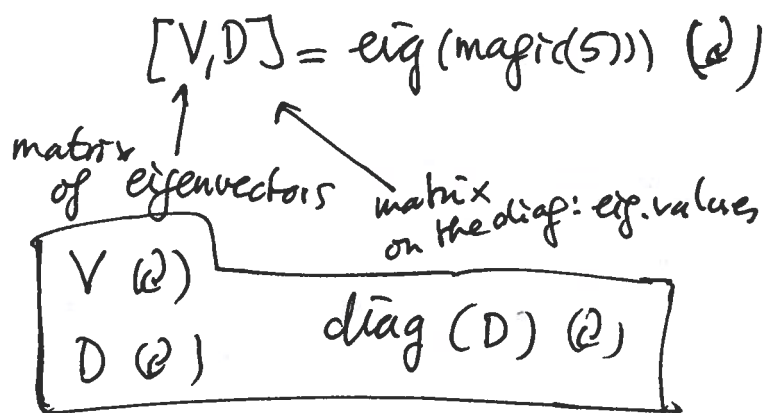 [V,D] = eig(magic(5))) (↵)
matrix
of eigenvectors
matrix
on the diag: eig.values
V (↵)
D (↵)
diag (D) (↵)